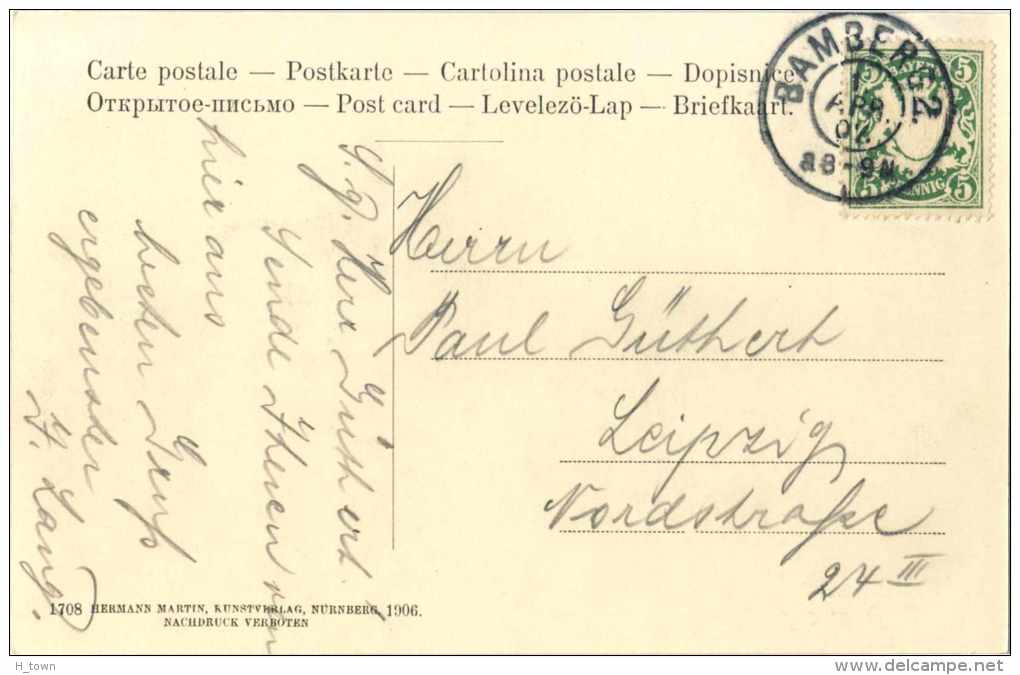 Carte postale — Postkarte — Cartolina postale — Dopisnice
Открытое-письмо — Post card — Levelezö-Lap — Briefkaart.
BAMBERG 2
APR
07
8-9N
5 5
5 5
S. g. Herr Güthert
Sende Ihnen von
hier aus
besten Gruß
ergebenster
J. Lang.
Herrn
Paul Güthert
Leipzig
Nordstraße
24 III
1708 HERMANN MARTIN, KUNSTVERLAG, NÜRNBERG, 1906.
NACHDRUCK VERBOTEN
H_town
www.delcampe.net